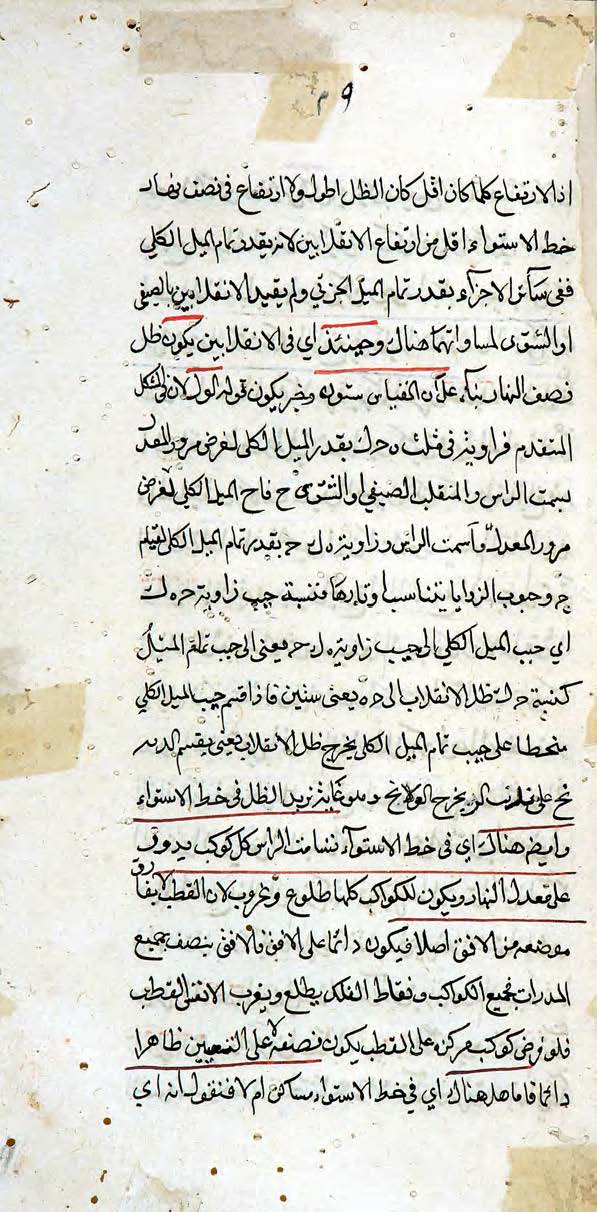 اذ الارتفاع كلما كان اقل كان الظل اطول ولا ارتفاع فى نصف نهار
خط الاستواء اقل من ارتفاع الانقلابين لانه بقدر تمام الميل الكلى
ففى سائر الاجزآء بقدر تمام الميل الجزئى ولم يقيد الانقلابين بالصيفى
او الشتوى لمساواتهما هناك وحينئذ اى فى الانقلابين يكون ظل
نصف النهار بناء على ان المقياس ستون يكون قوله لان فى الشكل
المتقدم زاوية فى مثلث ه ح ك بقدر الميل الكلى لفرض مرور المعدل
بسمت الراس والمنقلب الصيفى او الشتوى ح الميل الكلى لفرض
مرور المعدل سمت الراس وزاوية ه ك ح بقدر تمام الميل الكلى لقيام
ح وجيوب الزوايا يتناسب اوتارها فنسبة جيب زاوية ح ه ك
اى جيب الميل الكلى الى جيب زاوية ه ك ح يعنى الى جيب تمام الميل
كنسبة ح ك ظل الانقلاب الى ح ه يعنى ستين فاذا قسم جيب الميل الكلى
منحطا على جيب تمام الميل الكلى يخرج ظل الانقلاب يعنى يقسم
على يخرج غاية تزيد الظل فى خط الاستواء
وايضا هناك اى فى خط الاستوآء تسامت الراس كل كوكب يدور
على معدل النهار ويكون للكواكب كلها طلوع وغروب لان القطب لا يفارق
موضعه من الافق اصلا فيكون دائما على الافق فالافق ينصف جميع
المدارات فجميع الكواكب ونقاط الفلك يطلع ويغرب الا نفس القطب
فلو فرض كوكب مركزه على القطب يكون نصفه لا على التعيين ظاهرا
دائما فاما هل هناك اى فى خط الاستواء مساكن ام لا فنقول انه اى